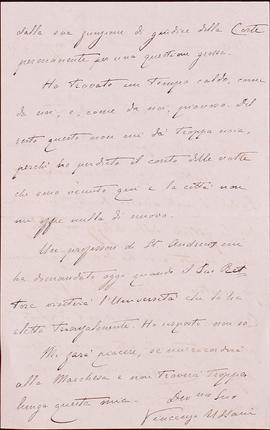 dalla sua funzione di giudice della Corte
permanente per una questione grossa.
Ho trovato un tempo caldo, come
da noi, e, come da noi, piovoso. Del
resto questo non mi dà troppa noia,
perchè ho perduto il conto delle volte
che sono venuto qui e la città non
mi offre nulla di nuovo.
Un professore di St Andrews mi
ha domandato oggi quando il suo Ret
tore visiterà l'Università che lo ha
eletto Ho risposto non so.
Mi farà piacere, se mi ricorderà
alla Marchesa e non troverà troppo
lunga questa mia. Dev mo Suo
Vincenzo Ussani